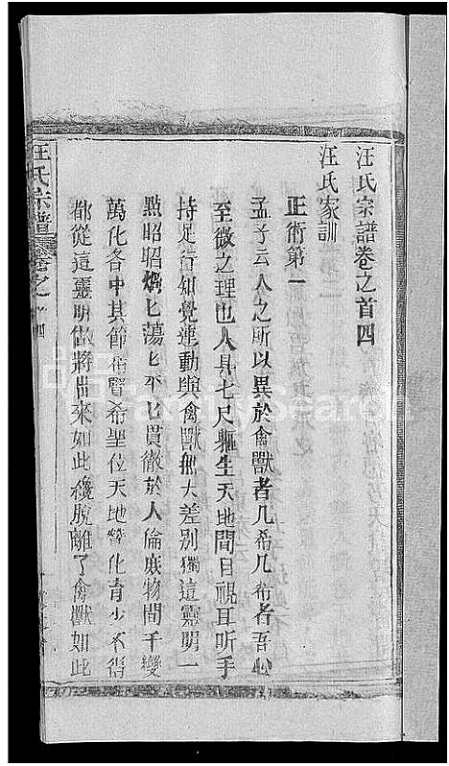 汪氏宗譜卷之首四
汪氏家訓
正術第一
孟子云人之所以異於禽獸者几希几希者吾心
至微之理也人具七尺軀生天地間目視耳听手
持足行知覺運動與禽獸無大差別獨這靈明一
點昭昭 蕩匕平匕貫徹於人倫庶物間千變
萬化各中其節希賢希聖位天地贊化育少不得
都從這靈明做將出來如此纔脫離了禽獸如此
汪氏宗譜 卷之首四
FamilySearch